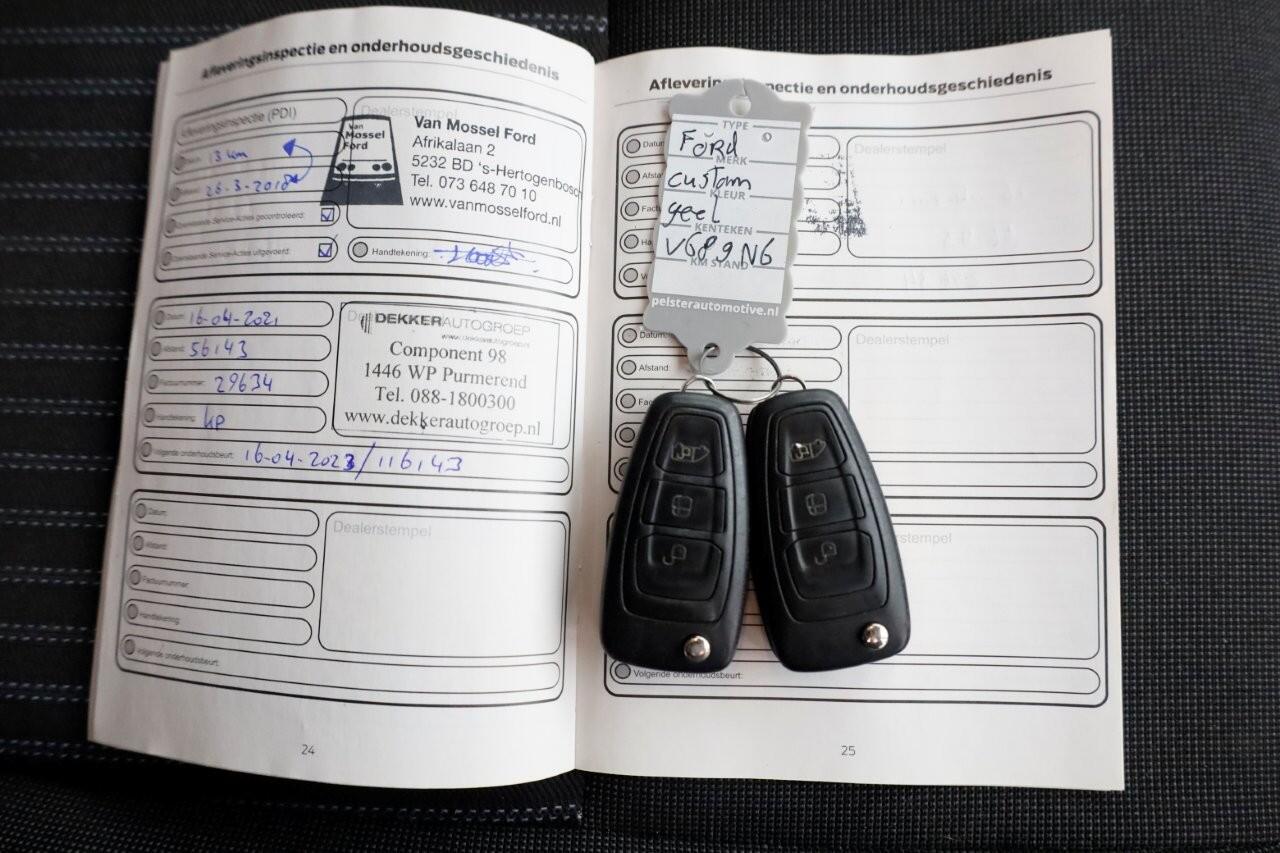 Afleveringsinspectie en onderhoudsgeschiedenis
Afleveringsinspectie (PDI)
13 km
26-3-2018
Service-Acties gecontroleerd:
Service-Acties uitgevoerd:
Dealerstempel
Van Mossel Ford
Van Mossel Ford
Afrikalaan 2
5232 BD 's-Hertogenbosch
Tel. 073 648 70 10
www.vanmosselford.nl
Handtekening:
Datum: 16-04-2021
Afstand: 56143
Factuurnummer: 29634
Handtekening:
Volgende onderhoudsbeurt: 16-04-2023/116143
DEKKERAUTOGROEP
www.dekkerautogroep.nl
Component 98
1446 WP Purmerend
Tel. 088-1800300
www.dekkerautogroep.nl
Datum:
Afstand:
Factuurnummer:
Handtekening:
Volgende onderhoudsbeurt:
Dealerstempel
24
Aflevering pectie en onderhoudsgeschiedenis
Datu
Afsta
Fact
Ha
V
Dealerstempel
TYPE
Ford
MERK
custom
KLEUR
geel
KENTEKEN
VG89N6
KM STAND
pelsterautomotive.nl
Datum:
Afstand:
Fac
Dealerstempel
rstempel
Volgende onderhoudsbeurt:
25